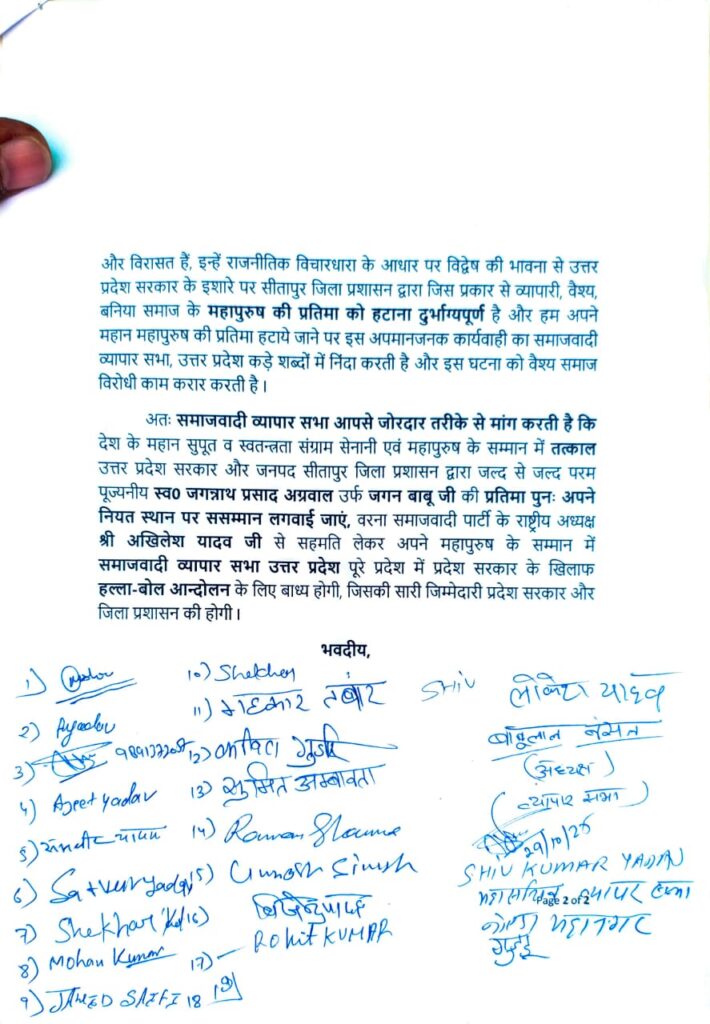 और विरासत हैं, इन्हें राजनीतिक विचारधारा के आधार पर विद्वेष की भावना से उत्तर
प्रदेश सरकार के इशारे पर सीतापुर जिला प्रशासन द्वारा जिस प्रकार से व्यापारी, वैश्य,
बनिया समाज के महापुरुष की प्रतिमा को हटाना दुर्भाग्यपूर्ण है और हम अपने
महान महापुरुष की प्रतिमा हटाये जाने पर इस अपमानजनक कार्यवाही का समाजवादी
व्यापार सभा, उत्तर प्रदेश कड़े शब्दों में निंदा करती है और इस घटना को वैश्य समाज
विरोधी काम करार करती है।
अतः समाजवादी व्यापार सभा आपसे जोरदार तरीके से मांग करती है कि
देश के महान सुपूत व स्वतन्त्रता संग्राम सेनानी एवं महापुरुष के सम्मान में तत्काल
उत्तर प्रदेश सरकार और जनपद सीतापुर जिला प्रशासन द्वारा जल्द से जल्द परम
पूज्यनीय स्व0 जगन्नाथ प्रसाद अग्रवाल उर्फ जगन बाबू जी की प्रतिमा पुनः अपने
नियत स्थान पर ससम्मान लगवाई जाएं, वरना समाजवादी पार्टी के राष्ट्रीय अध्यक्ष
श्री अखिलेश यादव जी से सहमति लेकर अपने महापुरुष के सम्मान में
समाजवादी व्यापार सभा उत्तर प्रदेश पूरे प्रदेश में प्रदेश सरकार के खिलाफ
हल्ला-बोल आन्दोलन के लिए बाध्य होगी, जिसकी सारी जिम्मेदारी प्रदेश सरकार और
जिला प्रशासन की होगी।
भवदीय,
1)
2)
3)
4) Ajeet yadav
5)
6)
7) Shekhar
8) Mohan Kumar
9) JAVED SAIFI
10) Shekhar
11)
12)
13) सुमित अम्बावता
14) Raman Sharma
15)
16)
17) ROHIT KUMAR
18
SHIV
यादव
(अध्यक्ष)
(व्यापार सभा)
29/10/25
SHIV KUMAR YADAV
Page 2 of 2
महानगर